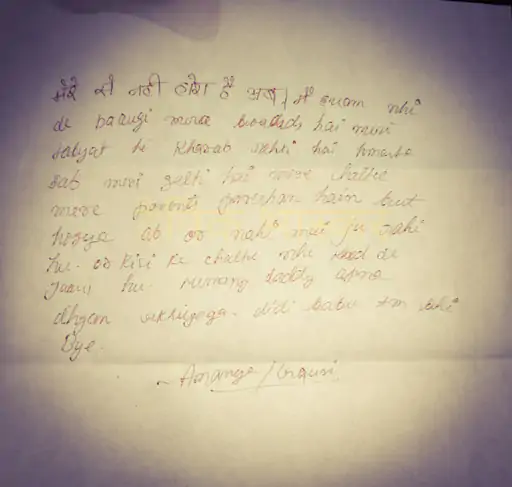 मेरे से नही होगा है अब। मैं exam nhi
de paaugi mere boards hai meri
tabyat he kharab rehti hai hmesha
sab meri galti hai mere chalte
mere parents pareshan hain but
hogya ab or nahi mei ja rahi
hu. or kisi ke chalte nhi
hu. mummy daddy apna
dhyan rakhiyega. didi babu
Bye.
~ Ananya /